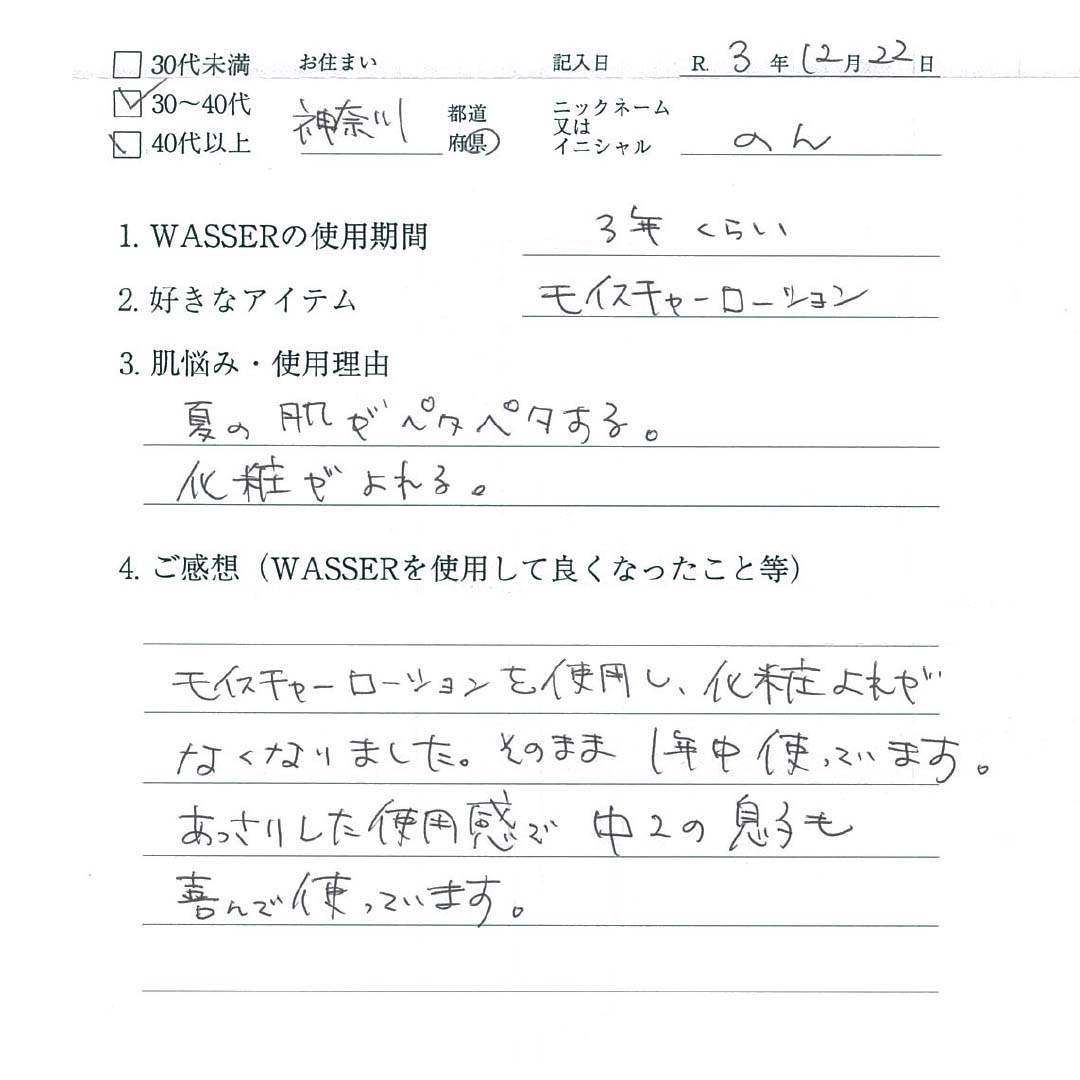 □ 30代未満 お住まい 記入日 R. 3 年 12 月 22 日
☑ 30～40代 神奈川 都道府県 ニックネーム又はイニシャル のん
☑ 40代以上
1. WASSERの使用期間 3年くらい
2. 好きなアイテム モイスチャーローション
3. 肌悩み・使用理由
夏の肌がペタペタする。
化粧がよれる。
4. ご感想（WASSERを使用して良くなったこと等）
モイスチャーローションを使用し、化粧よれが
なくなりました。そのまま1年中使っています。
あっさりした使用感で中2の息子も
喜んで使っています。